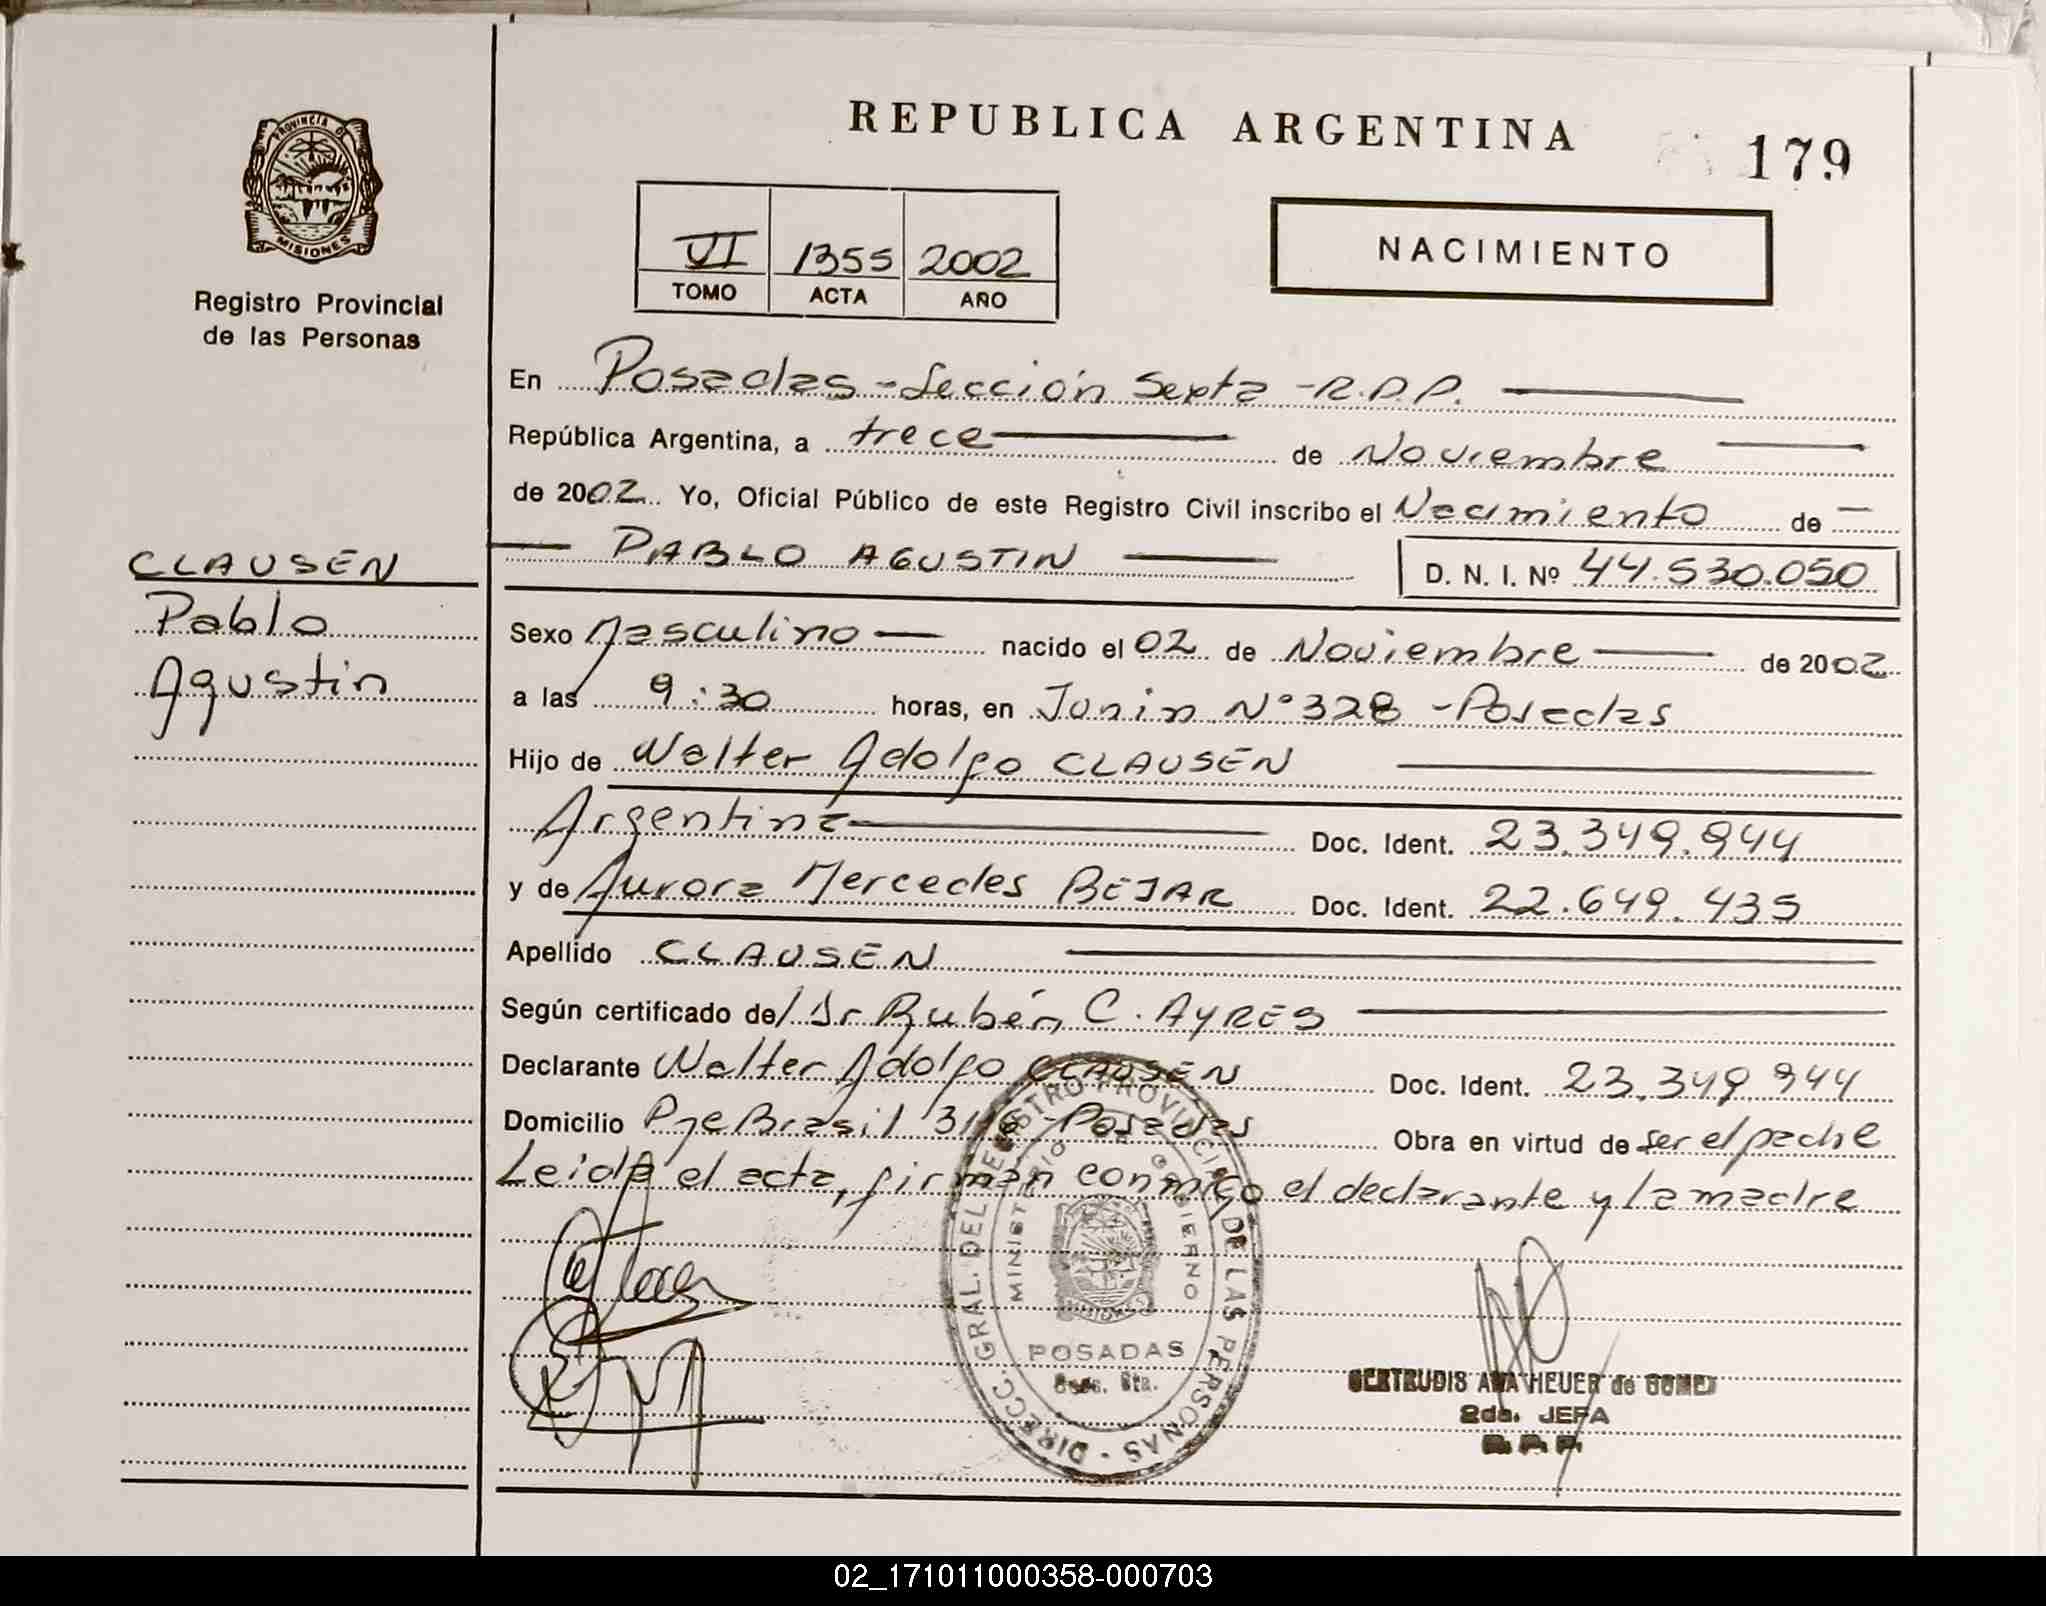 REPUBLICA ARGENTINA
179
PROVINCIA DE
MISIONES
Registro Provincial
de las Personas
VI 1355 2002
TOMO ACTA AÑO
NACIMIENTO
En Posadas - Sección Sexta - R.P.P.
República Argentina, a trece de Noviembre
de 2002 Yo, Oficial Público de este Registro Civil inscribo el Nacimiento de
PABLO AGUSTIN D. N. I. Nº 44.530.050
CLAUSEN
Pablo
Agustin
Sexo Masculino nacido el 02 de Noviembre de 2002
a las 9:30 horas, en Junin Nº 328 - Posadas
Hijo de Walter Adolfo CLAUSEN
Argentina Doc. Ident. 23.349.944
y de Aurora Mercedes BEJAR Doc. Ident. 22.649.435
Apellido CLAUSEN
Según certificado del Dr Rubén C. AYRES
Declarante Walter Adolfo CLAUSEN Doc. Ident. 23.349.944
Domicilio Pje Brasil - Posadas Obra en virtud de ser el padre
Leida el acta, firman conmigo el declarante y la madre
DIRECC. GRAL. DEL REGISTRO PROVINCIAL DE LAS PERSONAS
MINISTERIO DE GOBIERNO
POSADAS
Secc. 6ta.
GERTRUDIS ANA HEUER de GOMEZ
2da. JEFA
R.P.P.
02_171011000358-000703